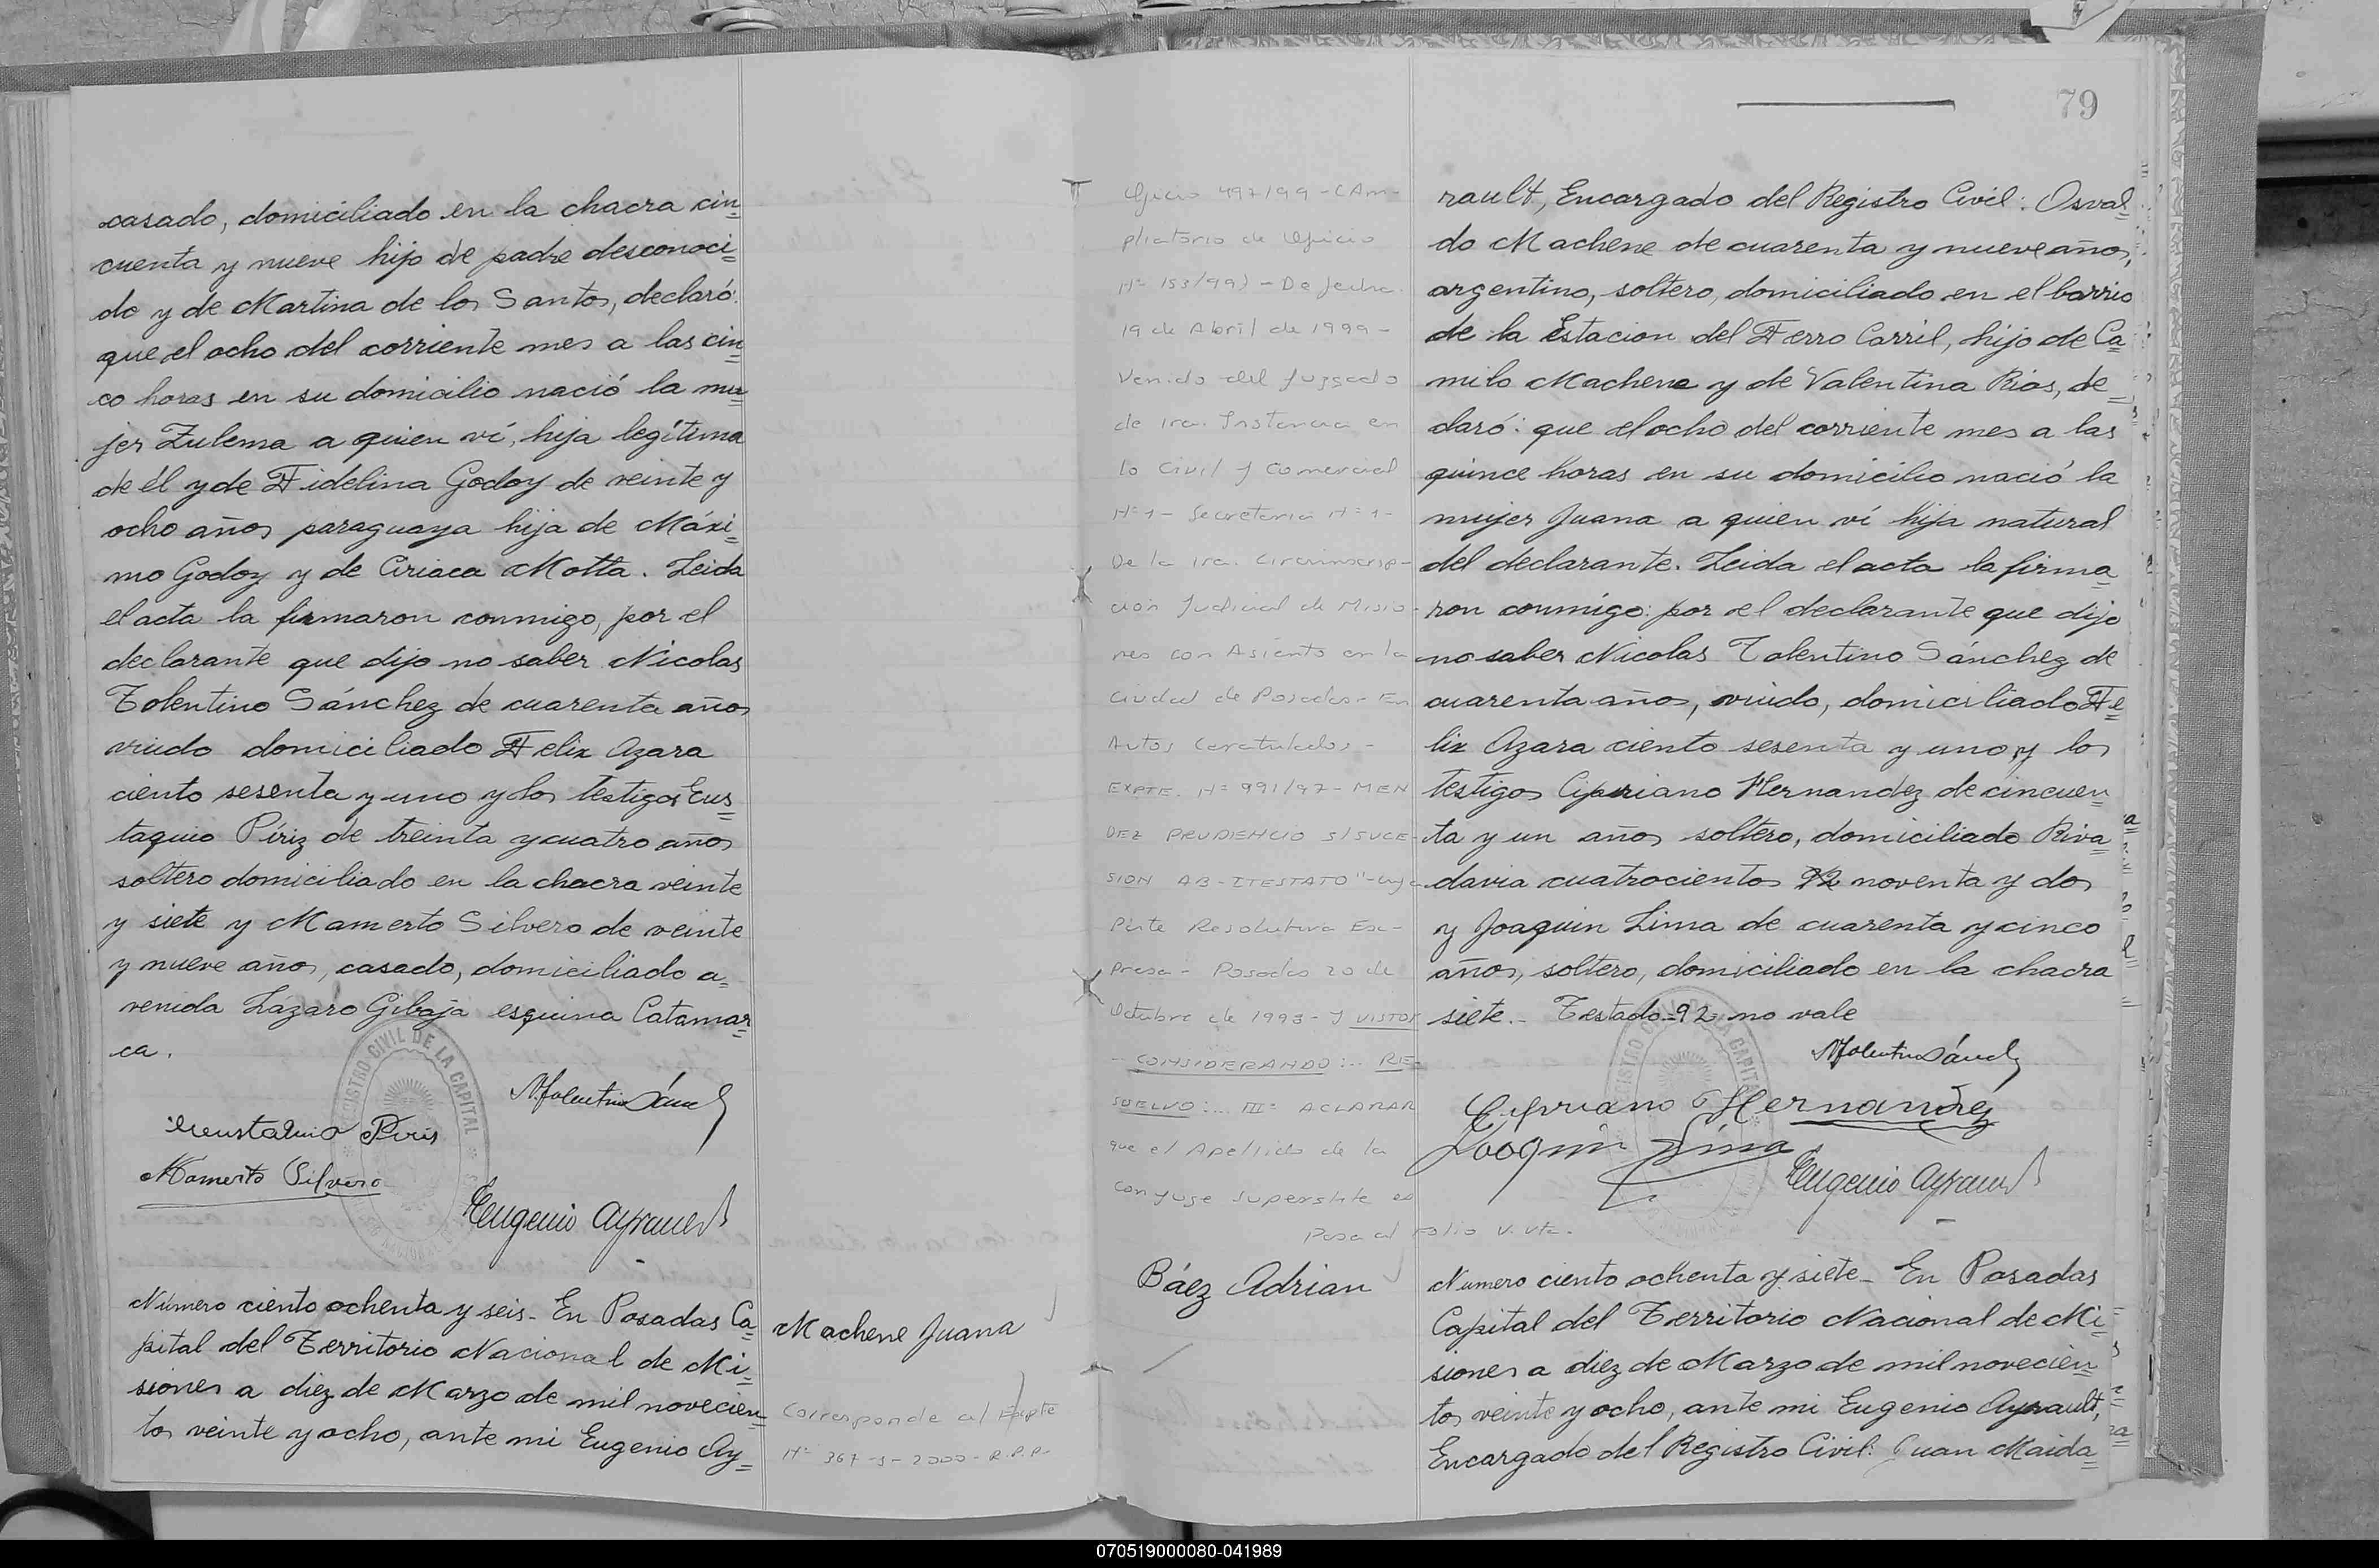 casado, domiciliado en la chacra cin=
cuenta y nueve hijo de padre desconoci=
do y de Martina de los Santos, declaró:
que el ocho del corriente mes a las cin=
co horas en su domicilio nació la mu=
jer Zulema a quien ví, hija legítima
de él y de Fidelina Godoy de veinte y
ocho años paraguaya hija de Máxi=
mo Godoy y de Ciriaca Motta. Leida
el acta la firmaron conmigo, por el
declarante que dijo no saber Nicolas
Tolentino Sánchez de cuarenta años
viudo domiciliado Felix Azara
ciento sesenta y uno y los testigos Eus=
taquio Píriz de treinta y cuatro años
soltero domiciliado en la chacra veinte
y siete y Mamerto Silvero de veinte
y nueve años, casado, domiciliado a=
venida Lázaro Gibaja esquina Catamar=
ca.
REGISTRO CIVIL DE LA CAPITAL
N. Tolentino Sánchez
Eustaquio Piris
Mamerto Silvero
Eugenio Ayrault
Número ciento ochenta y seis- En Posadas Ca=
pital del Territorio Nacional de Mi=
siones a diez de Marzo de mil novecien=
tos veinte y ocho, ante mi Eugenio Ay=
Machene Juana
Corresponde al Expte
Nº 367-S-2000-R.P.P-
79
Oficio 497/99-(Am-
pliatorio de Oficio
Nº 153/99)-De fecha
19 de Abril de 1999-
Venido del Juzgado
de 1ra. Instancia en
lo Civil y Comercial
Nº1- Secretaria Nº1-
De la 1ra. Circunscrip-
ción Judicial de Misio-
nes con Asiento en la
Ciudad de Posadas- En
Autos Caratulados-
EXPTE. Nº 991/97- MEN
DEZ PRUDENCIO S/SUCE-
SION AB-ITESTATO"-Cuya
Parte Resolutiva Ex-
Presa- Posadas 20 de
Octubre de 1993- Y VISTOS
- CONSIDERANDO:.. RE=
SUELVO:... IIIº ACLARAR
que el Apellido de la
Conyuge Superstite es
Pasa al Folio V. Vta.
rault, Encargado del Registro Civil: Osval=
do Machene de cuarenta y nueve años,
argentino, soltero, domiciliado en el barrio
de la Estacion del Ferro Carril, hijo de Ca=
milo Machene y de Valentina Rios, de=
claró: que el ocho del corriente mes a las
quince horas en su domicilio nació la
mujer Juana a quien ví hija natural
del declarante. Leida el acta la firma=
ron conmigo: por el declarante que dijo
no saber Nicolas Tolentino Sánchez de
cuarenta años, viudo, domiciliado Fe=
lix Azara ciento sesenta y uno, y los
testigos Cipriano Hernandez de cincuen=
ta y un años soltero, domiciliado Riva=
davia cuatrocientos 92 noventa y dos
y Joaquin Lima de cuarenta y cinco
años, soltero, domiciliado en la chacra
siete.- Testado-92-no vale
N. Tolentino Sánchez
Cipriano Hernandez
Joaquin Lima
Eugenio Ayrault
Báez Adrian
Numero ciento ochenta y siete- En Posadas
Capital del Territorio Nacional de Mi=
siones a diez de Marzo de mil novecien=
tos veinte y ocho, ante mi Eugenio Ayrault,
Encargado del Registro Civil: Juan Maida=
070519000080-041989